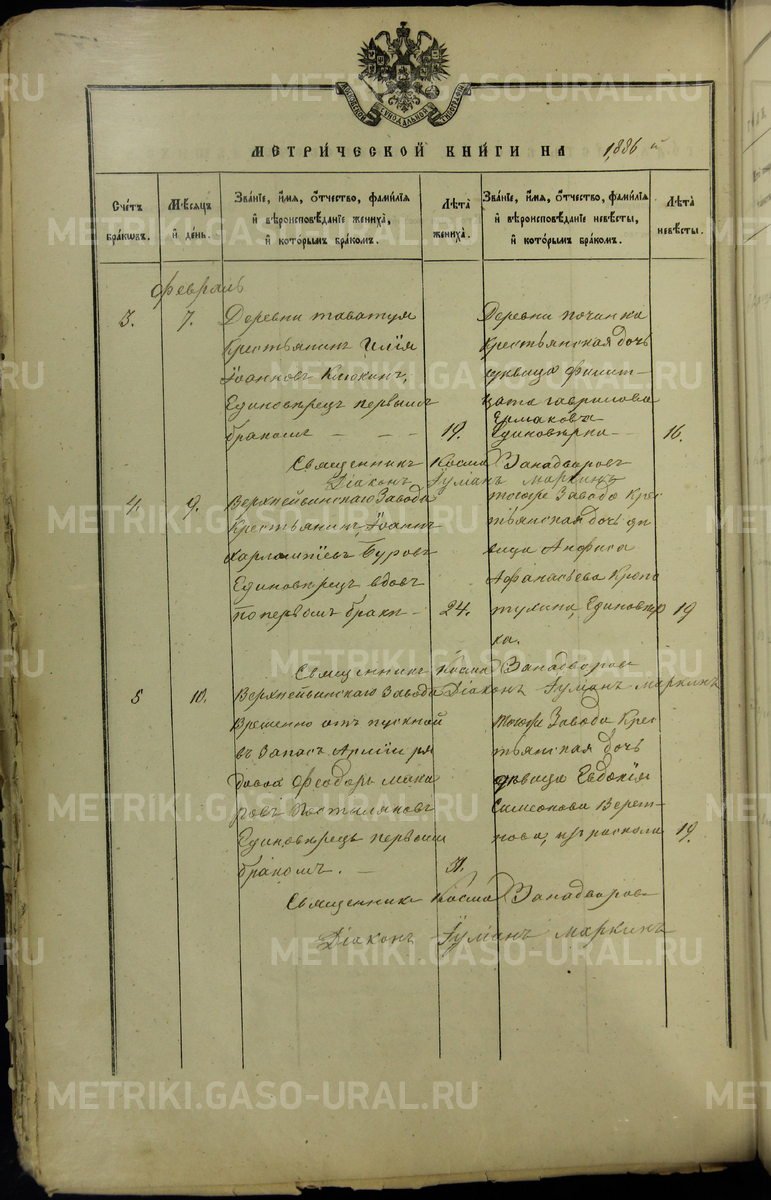 МОСКОВСКОЙ СѴНОДАЛЬНОЙ ТИПОГРАФІИ
МЕТРИ́ЧЕСКОЙ КНИ́ГИ НА 1886 й
Сче́тъ бра́кѡвъ.
Мѣ́сяцъ и де́нь.
Зва́ніе, и́мя, ѻ́тчество, фами́лія
и вѣроисповѣ́даніе жениха̀,
и кото́рымъ бра́комъ.
Лѣта̀ жениха̀.
Зва́ніе, и́мя, ѻ́тчество, фами́лія
и вѣроисповѣ́даніе невѣ́сты,
и кото́рымъ бра́комъ.
Лѣта̀ невѣ́сты.
Февраль
3. 7. Деревни таватуя
Крестьянинъ Илія
Іоанновъ Клюкинъ,
Единовѣрецъ первымъ
бракомъ — — — 19.
Деревни починка
крестьянская дочь
дѣвица Филит-
цата гаврилова
Ермаковъ
Единовѣрка — 16.
Священникъ Косма Занадворовъ
Діаконъ Гуманъ Маркинъ
4. 9. Верхнейвинскаго Завода
Крестьянинъ, Іоаннъ
Харлампіевъ Буровъ
Единовѣрецъ вдовъ
по первомъ браки — 24.
тогоже Завода Крес
тьянская дочь дѣ
вица Анфиса
Афанасьева Кропо
тулина, Единовѣр 19
ка.
Священникъ Косма Занадворовъ
Діаконъ Гуманъ Маркинъ
5 10. Верхнейвинскаго Завода
Временно отъ пускной
въ Запасъ Арміи ря
довой Феодоръ Мака
ровъ Постыляковъ
Единовѣрецъ первымъ
бракомъ. — 31.
тогоже Завода Крес
тьянская дочь
дѣвица Евдокія
Симеонова Верет-
нова, изъ раскола 19.
Священникъ Косма Занадворовъ
Діаконъ Гуманъ Маркинъ
METRIKI.GASO-URAL.RU